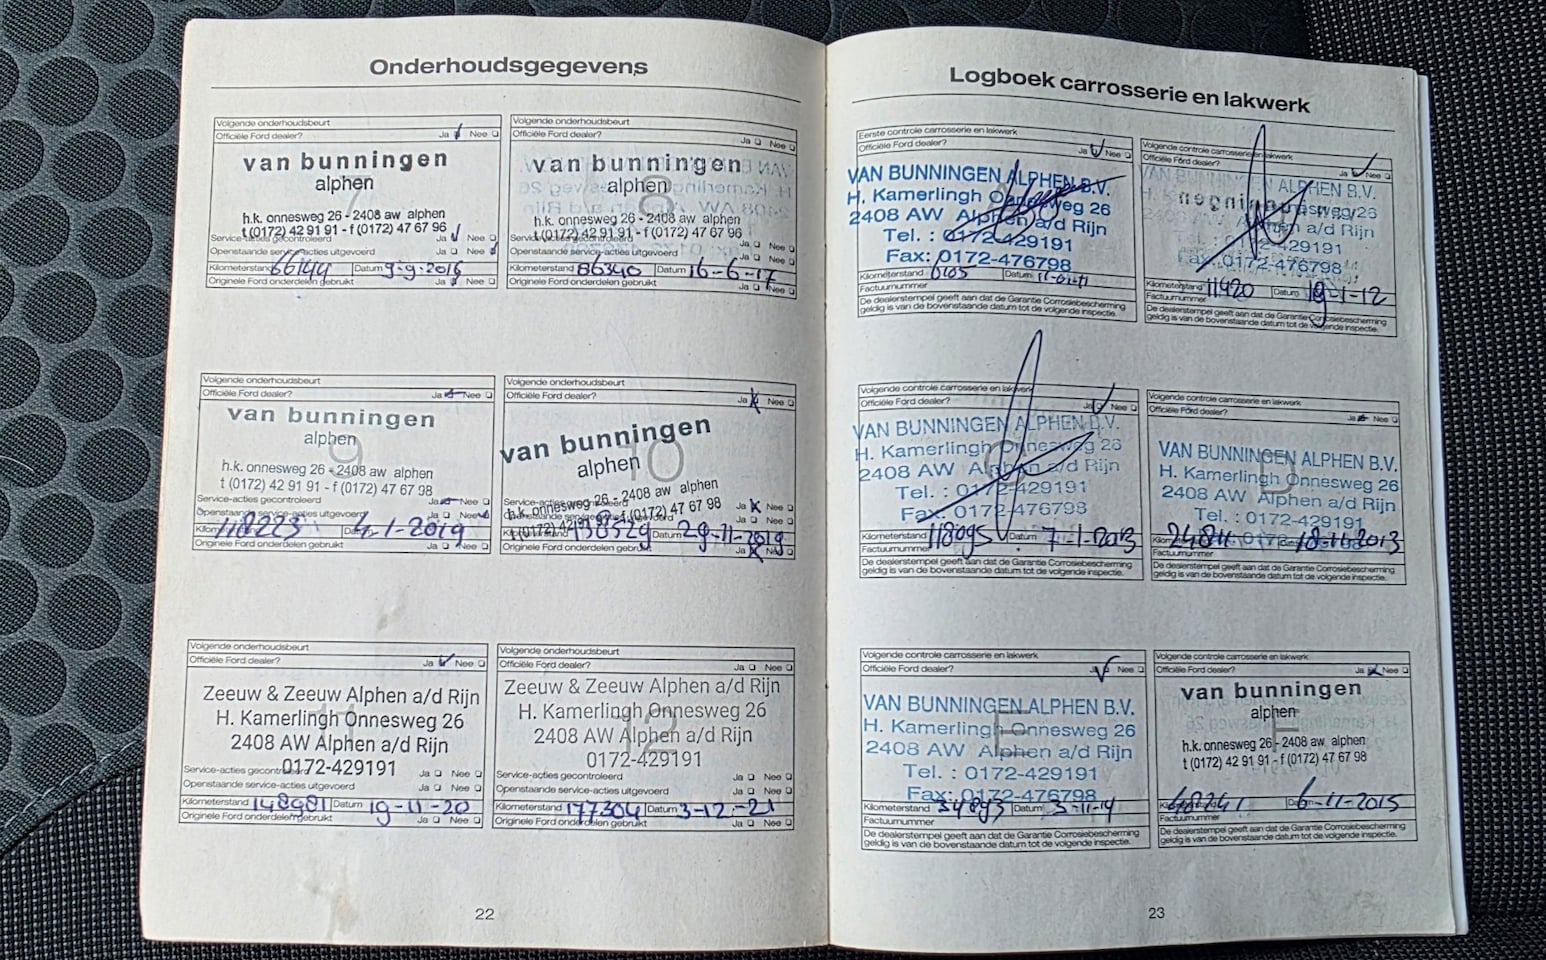 Onderhoudsgegevens
Volgende onderhoudsbeurt
Officiële Ford dealer? Ja Nee
van bunningen
alphen
7
h.k. onnesweg 26 - 2408 aw alphen
t (0172) 42 91 91 - f (0172) 47 67 96
Service-acties gecontroleerd Ja Nee
Openstaande service-acties uitgevoerd Ja Nee
Kilometerstand 66144 Datum 9-9-2016
Originele Ford onderdelen gebruikt Ja Nee
Volgende onderhoudsbeurt
Officiële Ford dealer? Ja Nee
van bunningen
alphen
8
h.k. onnesweg 26 - 2408 aw alphen
t (0172) 42 91 91 - f (0172) 47 67 96
Service-acties gecontroleerd Ja Nee
Openstaande service-acties uitgevoerd Ja Nee
Kilometerstand 86340 Datum 16-6-17
Originele Ford onderdelen gebruikt Ja Nee
Volgende onderhoudsbeurt
Officiële Ford dealer? Ja Nee
van bunningen
alphen
9
h.k. onnesweg 26 - 2408 aw alphen
t (0172) 42 91 91 - f (0172) 47 67 98
Service-acties gecontroleerd Ja Nee
Openstaande service-acties uitgevoerd Ja Nee
118223 4-1-2019
Originele Ford onderdelen gebruikt Ja Nee
Volgende onderhoudsbeurt
Officiële Ford dealer? Ja Nee
van bunningen
alphen
10
Service-acties
h.k. onnesweg 26 - 2408 aw alphen Ja Nee
f (0172) 47 67 98 Ja Nee
138529 Datum 29-11-2019
Originele Ford onderdelen gebruikt Ja Nee
Volgende onderhoudsbeurt
Officiële Ford dealer? Ja Nee
Zeeuw & Zeeuw Alphen a/d Rijn
H. Kamerlingh Onnesweg 26
11
2408 AW Alphen a/d Rijn
0172-429191
Service-acties gecontroleerd Ja Nee
Openstaande service-acties uitgevoerd Ja Nee
Kilometerstand 148981 Datum 19-11-20
Originele Ford onderdelen gebruikt Ja Nee
Volgende onderhoudsbeurt
Officiële Ford dealer? Ja Nee
Zeeuw & Zeeuw Alphen a/d Rijn
H. Kamerlingh Onnesweg 26
12
2408 AW Alphen a/d Rijn
0172-429191
Service-acties gecontroleerd Ja Nee
Openstaande service-acties uitgevoerd Ja Nee
Kilometerstand 177304 Datum 3-12-21
Originele Ford onderdelen gebruikt Ja Nee
22
Logboek carrosserie en lakwerk
Eerste controle carrosserie en lakwerk
Officiële Ford dealer? Ja Nee
VAN BUNNINGEN ALPHEN B.V.
H. Kamerlingh Onnesweg 26
2408 AW Alphen a/d Rijn
Tel. : 0172-429191
Fax: 0172-476798
Kilometerstand 6105 Datum
Factuurnummer
De dealerstempel geeft aan dat de Garantie Corrosiebescherming
geldig is van de bovenstaande datum tot de volgende inspectie.
Volgende controle carrosserie en lakwerk
Officiële Ford dealer? Ja Nee
VAN BUNNINGEN ALPHEN B.V.
Fax: 0172-476798
Kilometerstand 11420 Datum 19-1-12
Factuurnummer
De dealerstempel geeft aan dat de Garantie Corrosiebescherming
geldig is van de bovenstaande datum tot de volgende inspectie.
Volgende controle carrosserie en lakwerk
Officiële Ford dealer? Ja Nee
VAN BUNNINGEN ALPHEN B.V.
H. Kamerlingh Onnesweg 26
2408 AW Alphen a/d Rijn
Tel. : 0172-429191
Fax: 0172-476798
Kilometerstand 118095 Datum 7-1-2013
Factuurnummer
De dealerstempel geeft aan dat de Garantie Corrosiebescherming
geldig is van de bovenstaande datum tot de volgende inspectie.
Volgende controle carrosserie en lakwerk
Officiële Ford dealer? Ja Nee
VAN BUNNINGEN ALPHEN B.V.
H. Kamerlingh Onnesweg 26
D
2408 AW Alphen a/d Rijn
Tel. : 0172-429191
24811 18-11-2013
Factuurnummer
De dealerstempel geeft aan dat de Garantie Corrosiebescherming
geldig is van de bovenstaande datum tot de volgende inspectie.
Volgende controle carrosserie en lakwerk
Officiële Ford dealer? Nee
VAN BUNNINGEN ALPHEN B.V.
H. Kamerlingh Onnesweg 26
E
2408 AW Alphen a/d Rijn
Tel. : 0172-429191
Fax: 0172-476798
Kilometerstand 34893 Datum 3-11-14
Factuurnummer
De dealerstempel geeft aan dat de Garantie Corrosiebescherming
geldig is van de bovenstaande datum tot de volgende inspectie.
Volgende controle carrosserie en lakwerk
Officiële Ford dealer? Ja Nee
van bunningen
alphen
F
h.k. onnesweg 26 - 2408 aw alphen
t (0172) 42 91 91 - f (0172) 47 67 98
48241 6-11-2015
Factuurnummer
De dealerstempel geeft aan dat de Garantie Corrosiebescherming
geldig is van de bovenstaande datum tot de volgende inspectie.
23